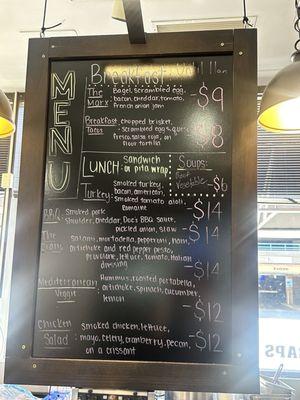 MENU
Breakfast Until 11am
- $9
The Bagel, scrambled egg,
Mark: bacon, cheddar, tomato,
French onion cream
- $9
Breakfast chopped brisket,
Tacos - scrambled eggs, queso
fresco, salsa roja, on
flour tortilla
$8
LUNCH: Sandwich
or pita wrap
Soups:
Vegetable - $6
Smoked turkey,
Turkey: bacon, american,
smoked tomato aioli,
Romaine
- $14
BBQ: smoked pork
shoulder, cheddar, Doc's BBQ sauce,
pickled onion, slaw
- $14
The salami, mortadella, peperoni, ham,
artichoke and red pepper pesto,
provolone, lettuce, tomato, Italian
dressing
- $14
Mediterranean Hummus, roasted portabella,
Veggie : artichoke, spinach, cucumber,
lemon
- $12
Chicken smoked chicken, lettuce,
Salad : mayo, celery, cranberry, pecan,
on a crissant
- $12
APS